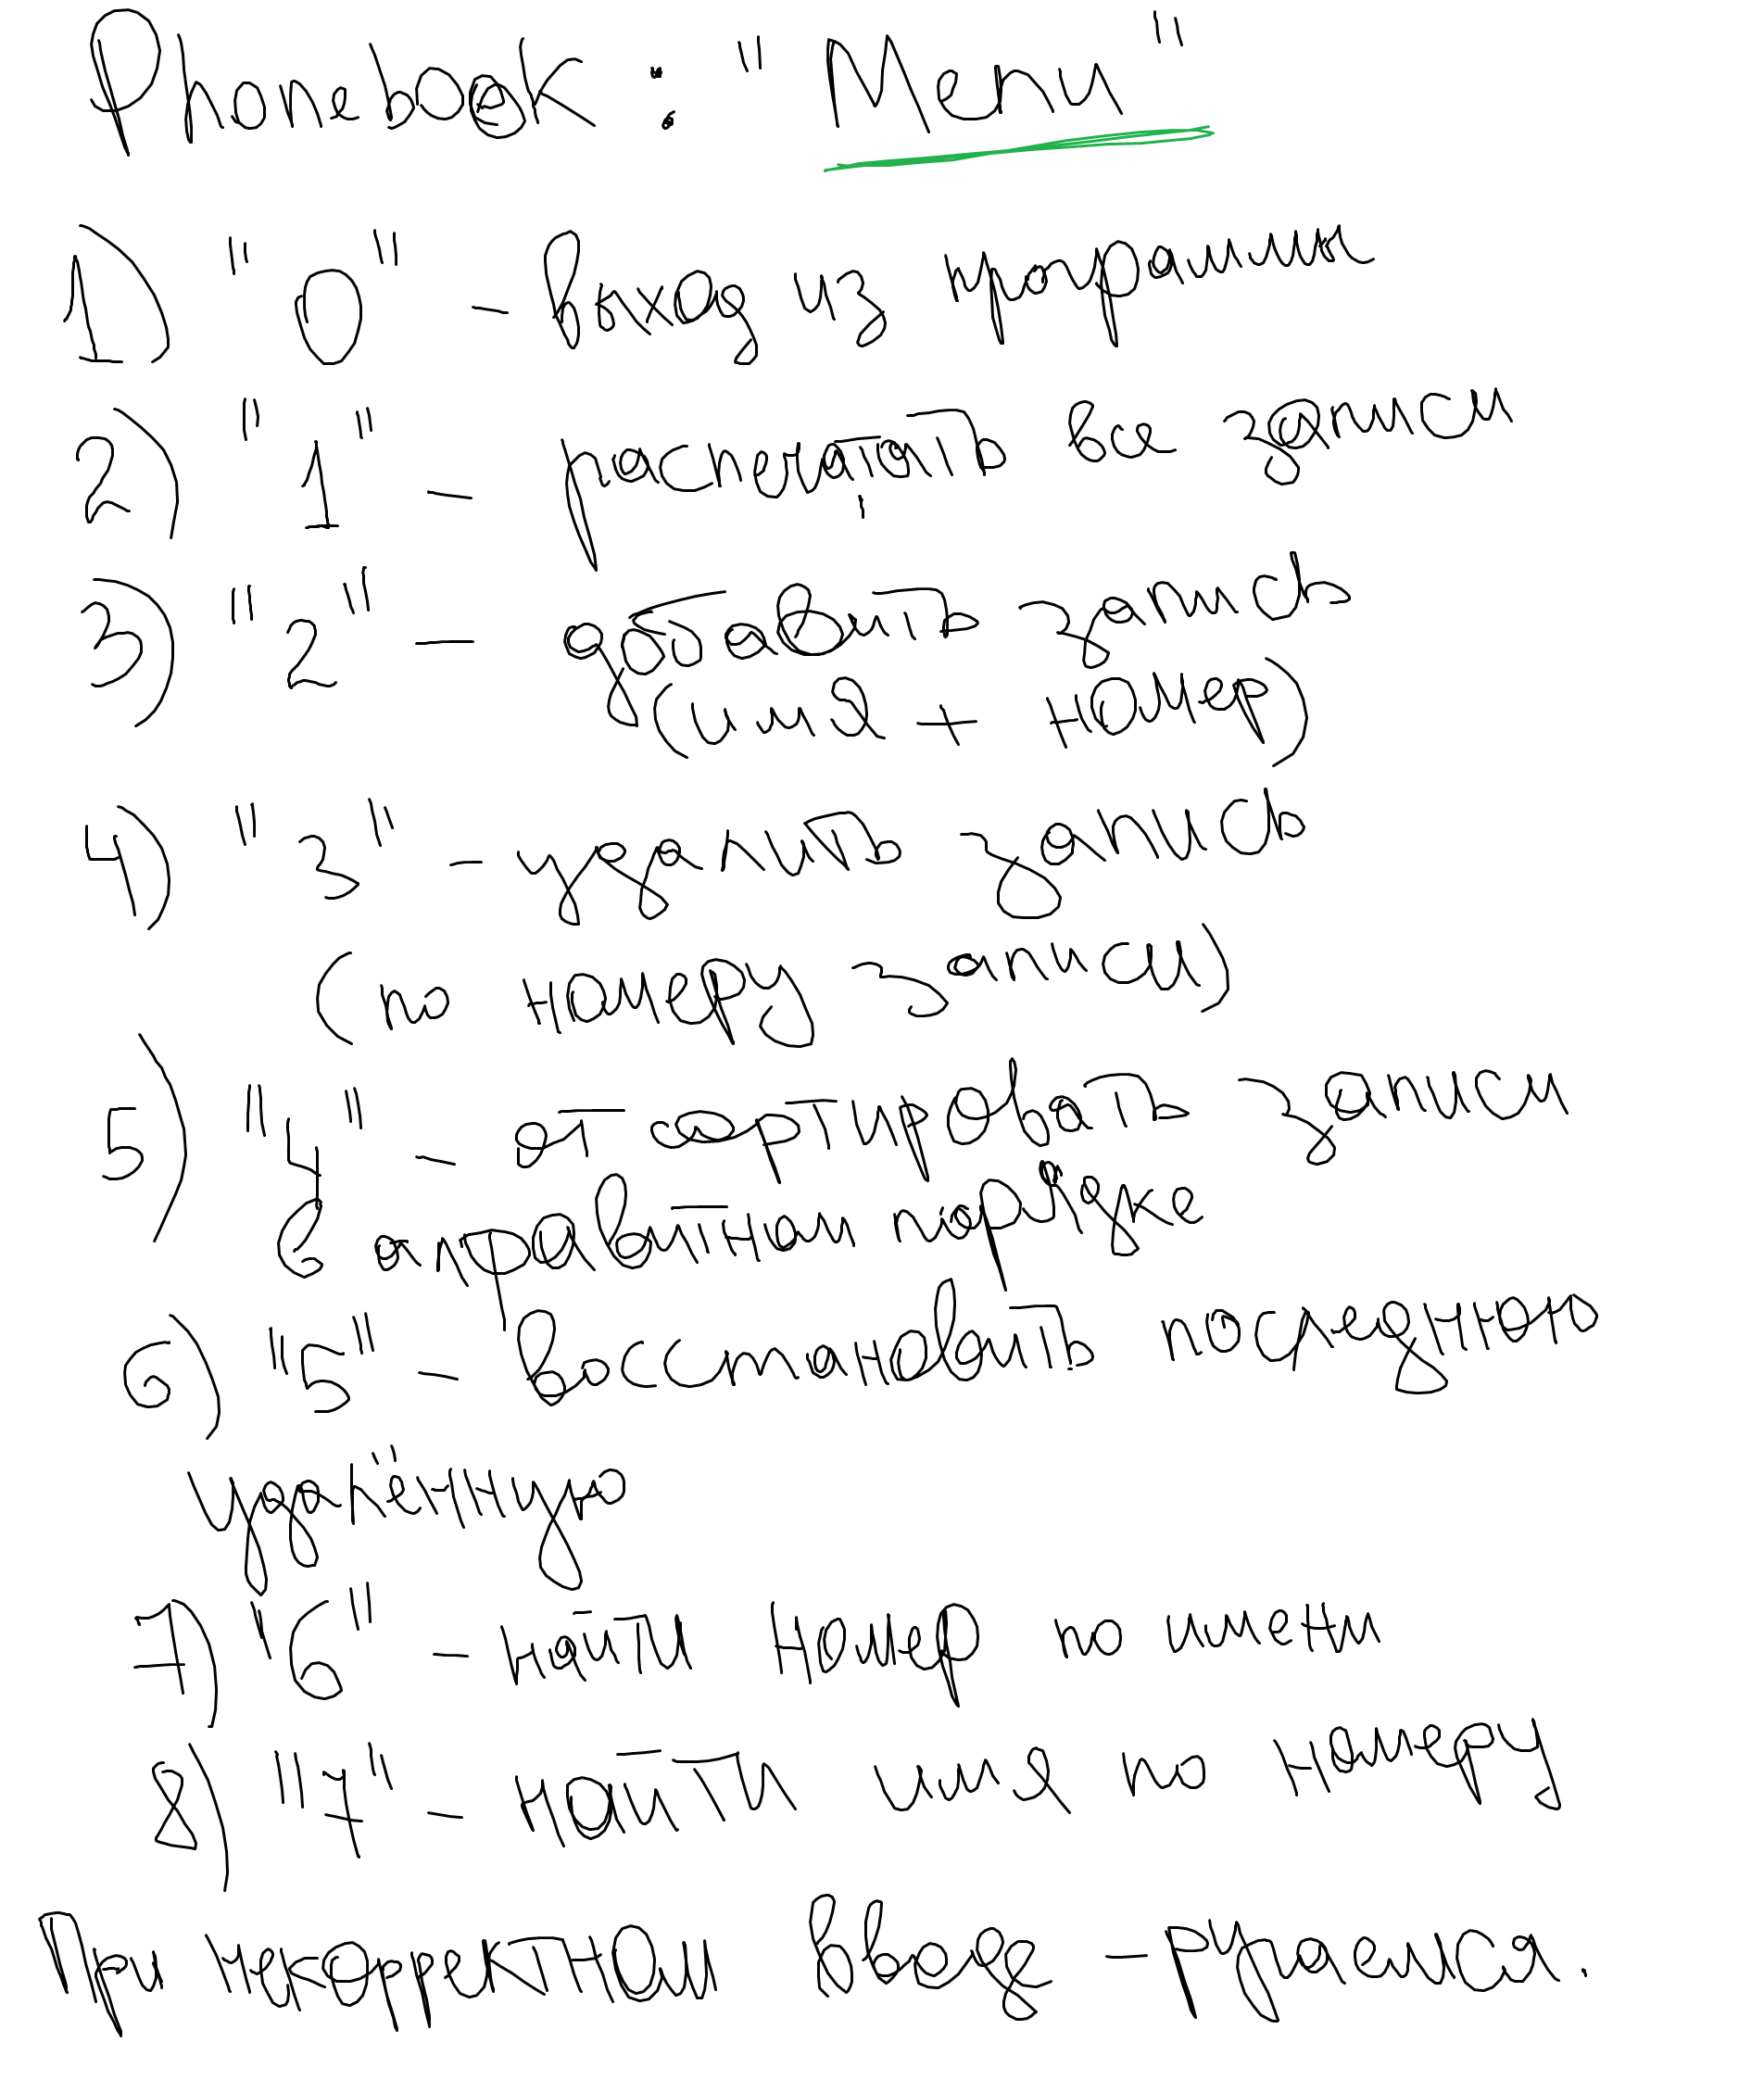 Phonebook : "Menu"
1) "0" - выход из программы
2) "1" - распечатать все записи
3) "2" - добавить запись
(имя + номер)
4) "3" - удалить запись
(по номеру записи)
5) "4" - отсортировать записи
в алфавитном порядке
6) "5" - восстановить последнюю
удалённую
7) "6" - найти номер по имени
8) "7" - найти имя по номеру
При некорректном вводе - ругаемся.